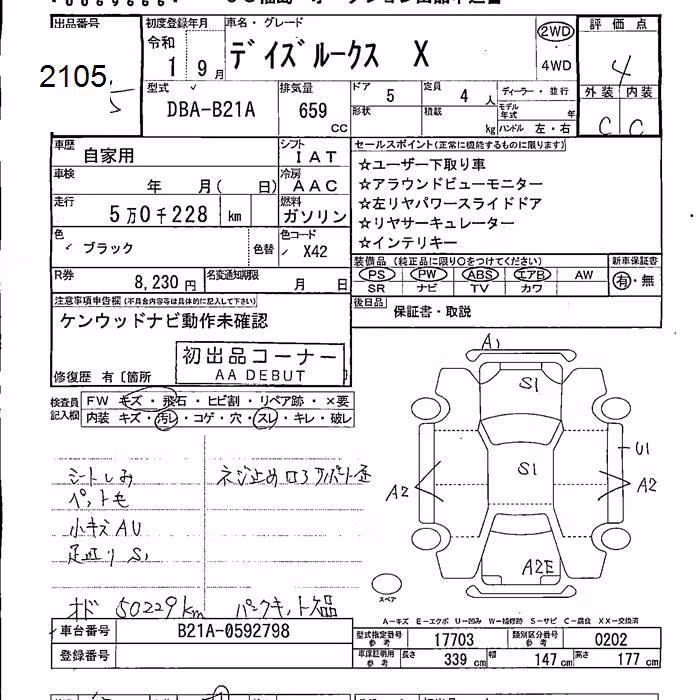 出品番号 初度登録年月 車名・グレード 評価点
令和 1 9月 デイズルークス X 2WD ・ 4WD 4
2105
5
型式 排気量 ドア 定員 ディーラー・並行 外装 内装
DBA-B21A 659 CC 5 4人 C C
形状 積載 kg モデル年式 年 ハンドル 左・右
車歴 自家用 シフト IAT
車検 年 月( 日) 冷房 AAC
走行 5万0千228 km 燃料 ガソリン
色 ブラック 色替 色コード X42
R券 8,230円 名変通知期限 月 日
セールスポイント(正常に機能するものに限ります)
☆ユーザー下取り車
☆アラウンドビューモニター
☆左リヤパワースライドドア
☆リヤサーキュレーター
☆インテリキー
装備品 (純正品に限り○をつけてください) 新車保証書
PS PW ABS エアB AW 有・無
SR ナビ TV カワ
後日品 保証書・取説
注意事項申告欄(不具合内容等は具体的に記入して下さい)
ケンウッドナビ動作未確認
初出品コーナー
AA DEBUT
修復歴 有〔箇所
検査員記入欄 FW キズ・飛石・ヒビ割・リペア跡・×要
内装 キズ・汚レ・コゲ・穴・スレ・キレ・破レ
シートしみ ネジ止め
ペット毛
小キズAU
足廻りS1
オド 50229km パンクキット欠品
A1
S1
U1
S1
A2 A2
A2E
スペア
A－キズ E－エクボ U－凹み W－補修跡 S－サビ C－腐食 XX－交換済
車台番号 B21A-0592798
登録番号
型式指定番号参考 17703 類別区分番号参考 0202
車庫証明用参考 長さ 339cm 幅 147cm 高さ 177cm